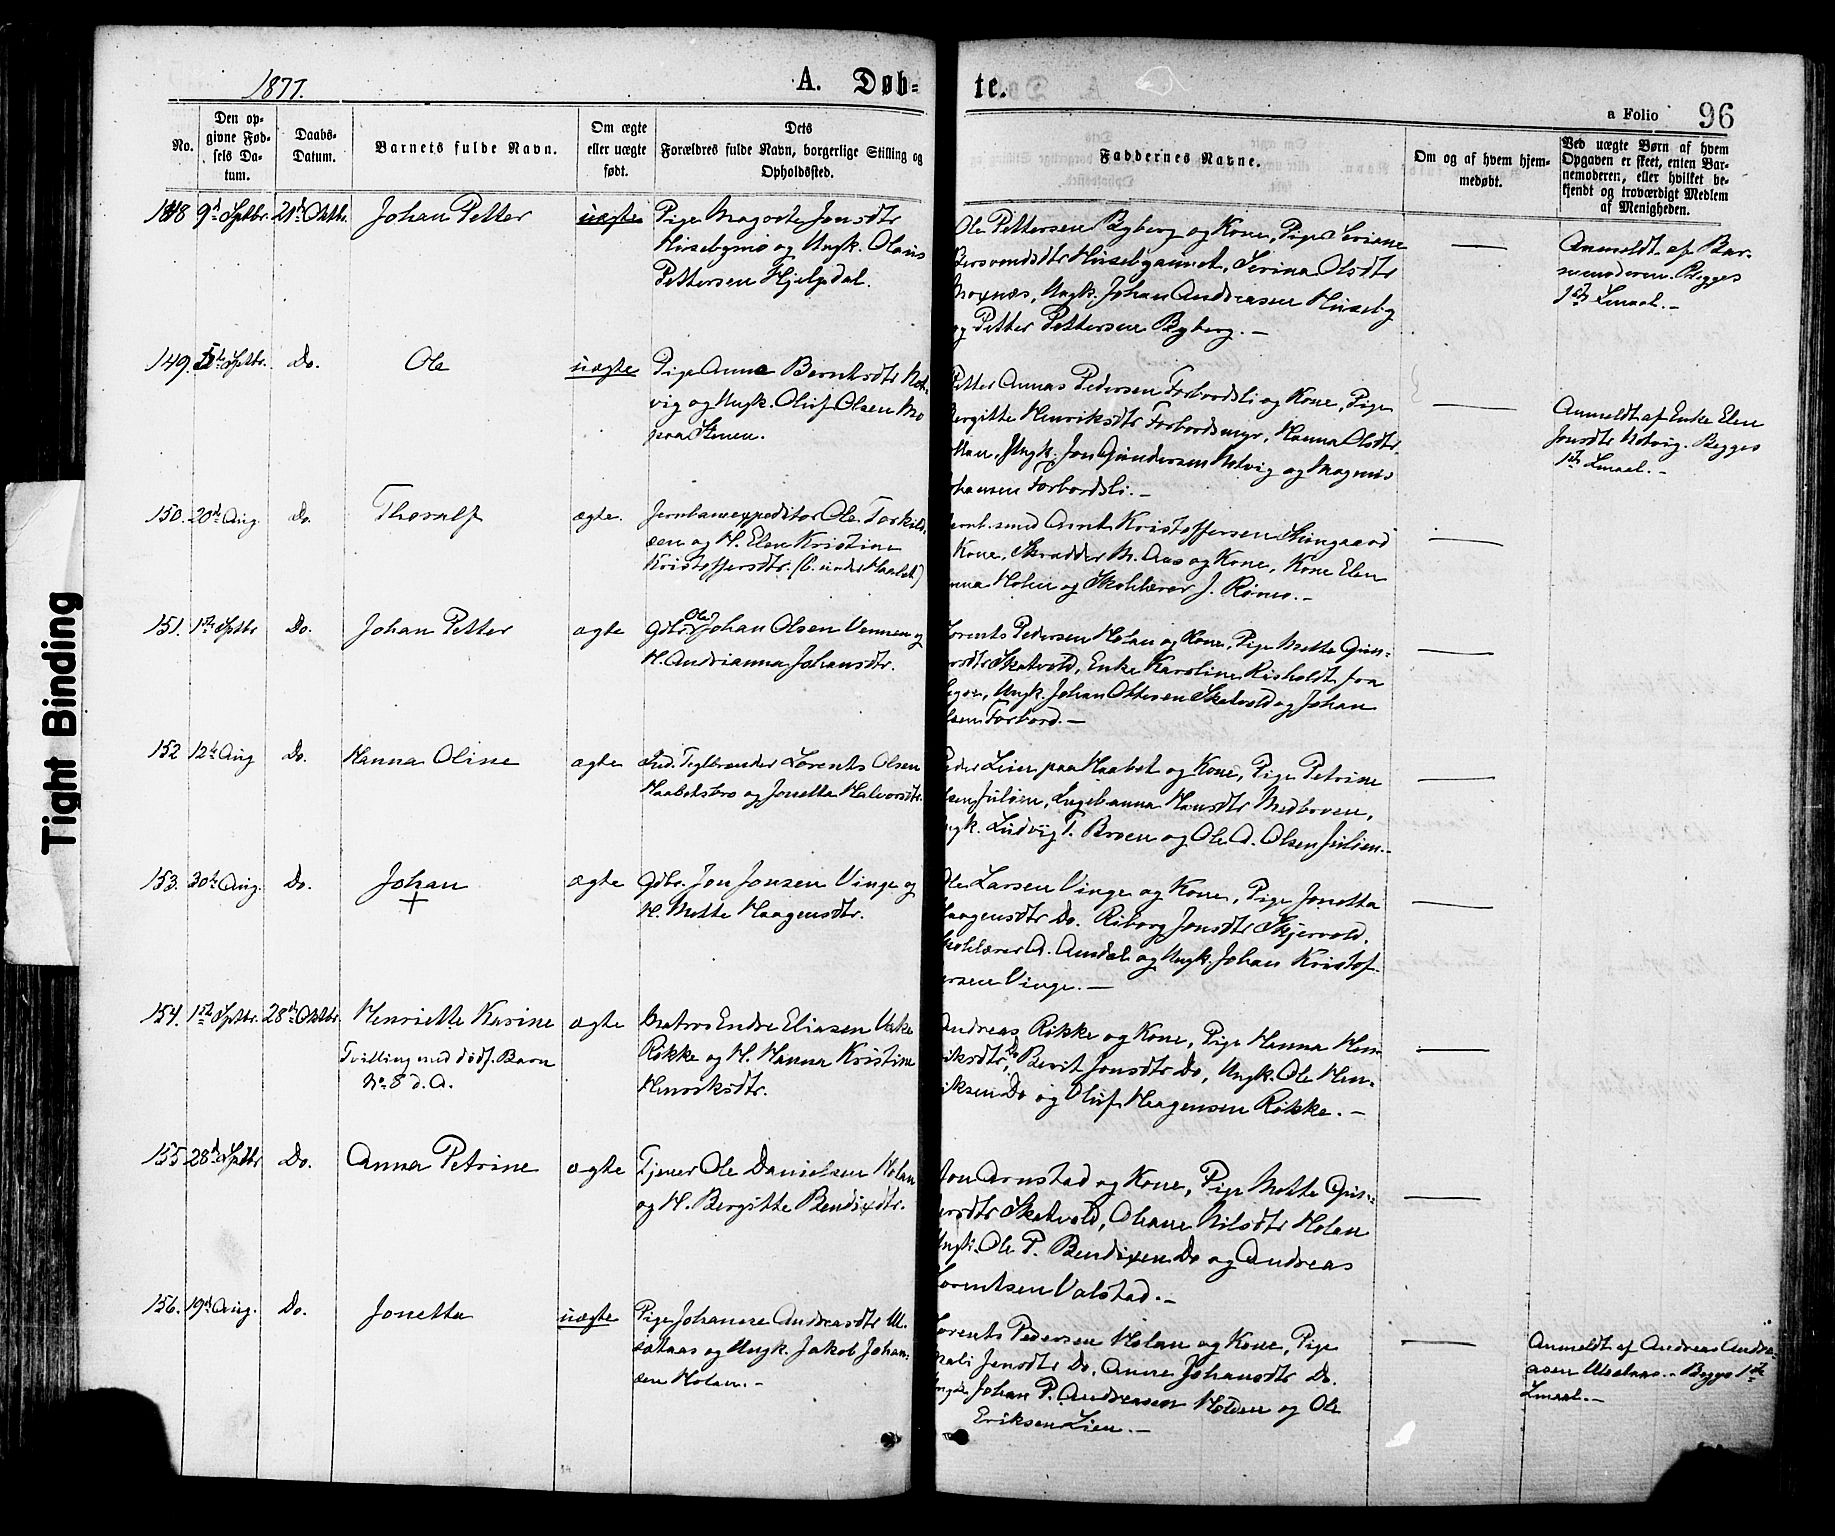 1877.
A. Døb-
te.
a Folio 96
No.
Den op-
givne Fød-
sels Da-
tum.
Daabs-
Datum.
Barnets fulde Navn.
Om ægte
eller uægte
født.
Dets
Forældres fulde Navn, borgerlige Stilling og
Opholdssted.
Faddernes Navne.
Om og af hvem hjem-
medøbt.
Ved uægte Børn af hvem
Opgaven er skeet, enten Bar-
nemoderen, eller hvilket be-
kjendt og troværdigt Medlem
af Menigheden.
148 9de Sptbr. 21de Oktbr. Johan Petter uægte Pige Magrete Jonsdtr
Husebymo og Ungk. Olaus
Pettersen Hjelpdal.
Ole Pettersen Byberg og Kone, Pige Seriane
Bersvendsdtr Husebyaunet, Serina Olsdtr
Moxnæs, Ungk. Johan Andreasen Huseby
og Petter Pettersen Byberg. —
Anmeldt af Bar-
nemoderen. Begges
1ste Lmaal. —
149. Sptbr. Do. Ole uægte Pige Anna Berntsdtr Hot-
vig og Ungk. Oluf Olsen Mo
paa Stenen.
Petter Annas Pedersen Forbordsli og Kone, Pige
Bergitte Henriksdtr Forbordsmyr, Hanna Olsdtr
Ungk. Jon Gundersen Hotvig og Magnus
Johansen Forbordsli. —
Anmeldt af Enke Elen
Jonsdtr Hotvig. Begges
1ste Lmaal. —
150. 20de Aug. do. Thoralf ægte. Jernbaneexpeditør Ole Torkild-
sen og H. Elen Kristine
Kristoffersdtr. (b. under Haabet)
Jernb.smed Arnt Kristoffersen
Kone, Skrædder M. Aas og Kone, Kone Elen
Anna Holen og Skolelærer J. Rømo. —
151. 1ste Sptbr Do. Johan Petter ægte Gdbr. Ole Johan Olsen Vennen og
H. Andrianna Johansdtr.
Lorents Pedersen Holan og Kone, Pige Mette Gun-
ersdtr Skatvold, Enke Karoline Risholdt fra
Ungk. Johan Ottesen Skatvold og Johan
Olsen Forbord. —
152 12te Aug Do. Hanna Oline ægte Ind. Teglbrænder Lorents Olsen
Haabetsbro og Jonetta Halvorsdtr.
Peder Leier paa Haabet og Kone, Pige Petrine
Olsen Julsien, Ingebanna Hansdtr Medbroen,
Ungk. Ludvig T. Broen og Ole A. Olsen Julsien. —
153. 30te Aug. Do. Johan ægte Gdbr. Jon Jonsen Vinge og
+
H. Mette Haagensdtr.
Ole Larsen Vinge og Kone, Pige Jonetta
Haagensdtr Do. Riborg Jonsdtr Skjervold.
Skolelærer A. Amdal og Ungk. Johan Kristof-
fersen Vinge. —
154. 1ste Sptbr. 28de Oktbr. Henriette Karine ægte Matros Endre Eliasen
Tvilling med dødf. Barn
No. 8 d. A.
Røkke og H. Hanna Kristine
Henriksdtr.
Andreas Røkke og Kone, Pige Hanna Hen-
riksdtr Do, Berit Jonsdtr Do, Ungk. Ole Hen-
riksen Do og Oluf Haagensen Røkke. —
155. 28de Sptbr Do. Anna Petrine ægte Tjener Ole Danielsen Holan
og H. Bergitte Bendixdtr.
Jon Arnstad og Kone, Pige Mette Gun-
ersdtr Skatvold, Ohane Nilsdtr Holan
Ungk. Ole P. Bendixen Do og Andreas
Lorentsen Valstad. —
156. 19de Aug. Do. Jonetta uægte Pige Johanne Andreasdtr Ul-
sætaas og Ungk. Jakob Johan-
sen Holan. —
Lorents Pedersen Holan og Kone, Pige
Mali Jensdtr Do, Anne Johansdtr Do.
Ungk. Johan P. Andreasen Holden og Ole
Eriksen Lien. —
Anmeldt af Andreas Andre-
asen Ulsetaas. Begges 1ste
Lmaal. —
Tight Binding